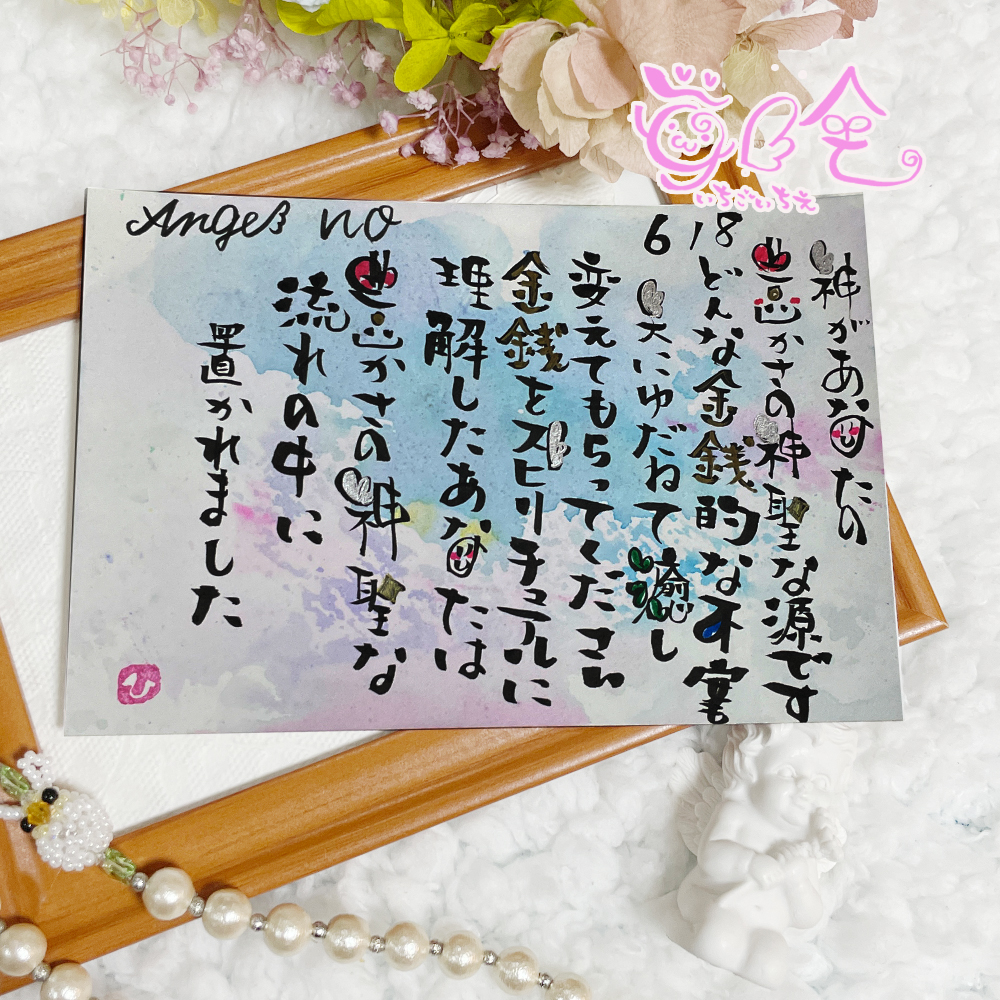 いちごいちえ
Angel no 618
神があなたの
豊かさの神聖な源です
どんな金銭的な不
天にゆだねて癒し
変えてもらってください
金銭をスピリチュアルに
理解したあなたは
豊かさの神聖な
流れの中に
置かれました